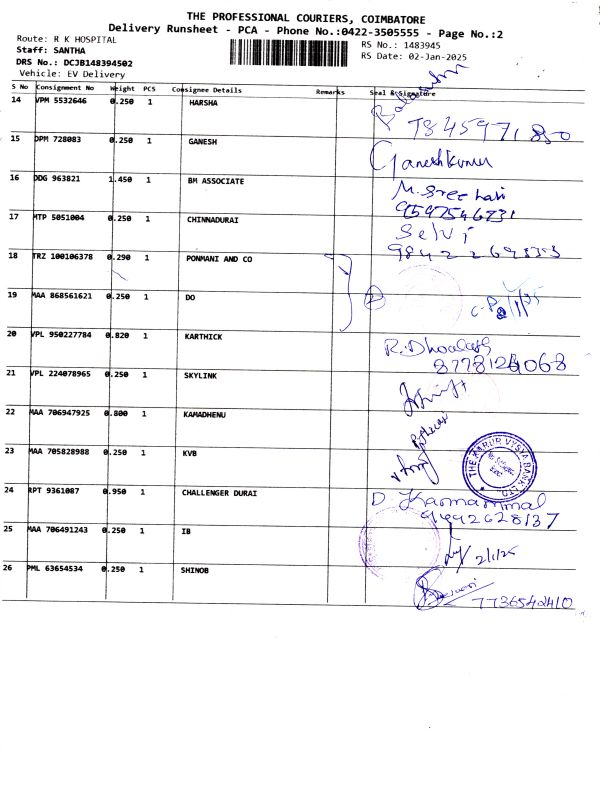 THE PROFESSIONAL COURIERS, COIMBATORE
Delivery Runsheet - PCA - Phone No.:0422-3505555 - Page No.:2
Route: R K HOSPITAL
Staff: SANTHA
DRS No.: DCJB148394502
Vehicle: EV Delivery
RS No.: 1483945
RS Date: 02-Jan-2025
S No Consignment No Weight PCS Consignee Details Remarks Seal & Signature
14 VPM 5532646 0.250 1 HARSHA
15 DPM 728083 0.250 1 GANESH Ganeshkumar
16 DDG 963821 1.450 1 BM ASSOCIATE M. Sree hari
9597546731
17 MTP 5051004 0.250 1 CHINNADURAI Selvi
18 TRZ 100106378 0.290 1 PONMANI AND CO
19 MAA 868561621 0.250 1 DO
20 VPL 950227784 0.820 1 KARTHICK
21 VPL 224078965 0.250 1 SKYLINK
22 MAA 706947925 0.800 1 KAMADHENU
23 MAA 705828988 0.250 1 KVB
THE KARUR VYSYA BANK LTD
24 RPT 9361087 0.950 1 CHALLENGER DURAI
25 MAA 706491243 0.250 1 IB 2/1/25
26 PML 63654534 0.250 1 SHINOB
7736542410